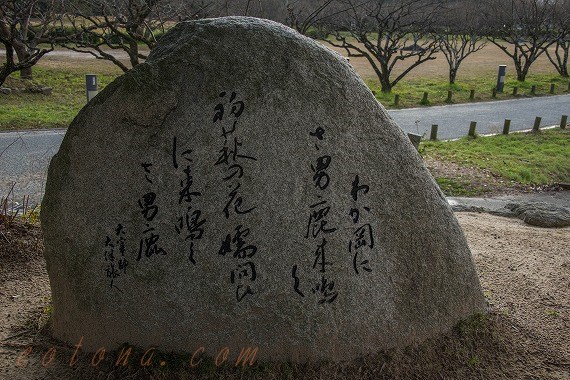 わか岡に
さ男鹿来鳴く
初萩の花嬬問ひ
に来鳴く
さ男鹿
大宰帥
大伴旅人
cotona.com